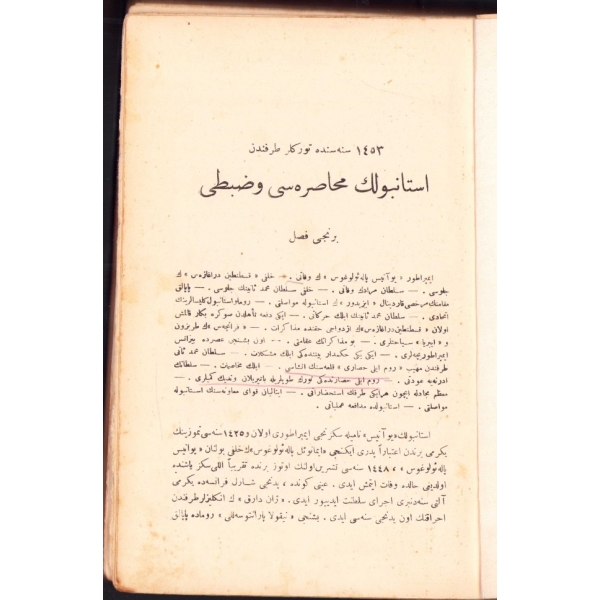 ١٤٥٣ سنه‌سنده تورکلر طرفندن
استانبولك محاصره‌سی وضبطی
برنجی فصل
ایمپراطور « یوآنیس پاله‌ئولوغوس » ك وفاتی . — خلفی « قسطنطین دراغازه‌س » ك
جلوسی . — سلطان مرادك وفاتی . — خلفی سلطان محمد ثانینك جلوسی . — پاپالق
مقامنك مرخصی قاردینال « ایزیدور » ك استانبوله مواصلتی . — روما و استانبول کلیسالرینك
اتحادی . — سلطان محمد ثانینك ایلك حرکاتی . — ایکی دفعه تأهلدن صوکره بکار قالمش
اولان « قسطنطین دراغازه‌س » ك ازدواجی حقنده مذاکرات . — « فرانچه‌س » ك طربزون
و « ایبریا » سیاحتلری . — بو مذاکراتك عقامتی . — اون بشنجی عصرده بیزانس
ایمپراطوریچه‌لری . — ایکی یکی حکمدار بیننده‌کی ایلك مشکلات . — سلطان محمد ثانی
طرفندن مهیب « روم ایلی حصاری » قلعه‌سنك انشاسی . — ایلك مخاصمات . — سلطانك
ادرنه‌یه عودتی . — روم ایلی حصارنده‌کی تورك طوپلریله باتیریلان وندیك کمیلری . —
معظم مجادله ایچون هرایکی طرفك استحضاراتی . — ایتالیان قوای معاونه‌سنك استانبوله
مواصلتی . — استانبولده مدافعه عملیاتی .
استانبولك « یوآنیس » نامیله سکزنجی ایمپراطوری اولان و ١٤٢٥ سنه‌سی تموزینك
یکرمی برندن اعتباراً پدری ایکنجی « ایمانوئل پاله‌ئولوغوس » ك خلفی بولنان « یوآنیس
پاله‌ئولوغوس » ، ١٤٤٨ سنه‌سی تشرین اولنك اوتوز برنده تقریباً اللی سکز یاشنده
اولدیغی حالده وفات ایتمش ایدی . عینی کونده ، یدنجی شارل فرانسه‌ده یکرمی
آلتی سنه‌دنبری اجرای سلطنت ایدییور ایدی . « ژان دارق » ك انکلیزلر طرفندن
احراقنك اون یدنجی سنه‌سی ایدی . بشنجی « نیقولا پارانتوسه‌للی » روماده پاپالق